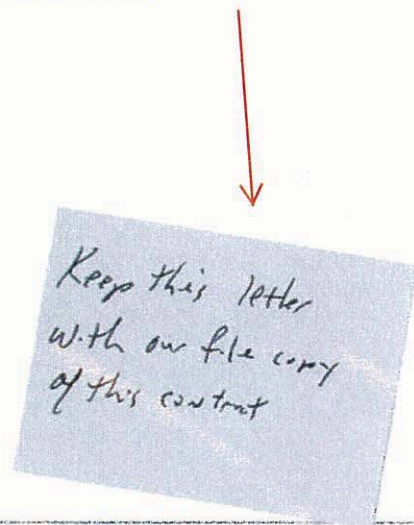 Keep this letter
with our file copy
of this contract